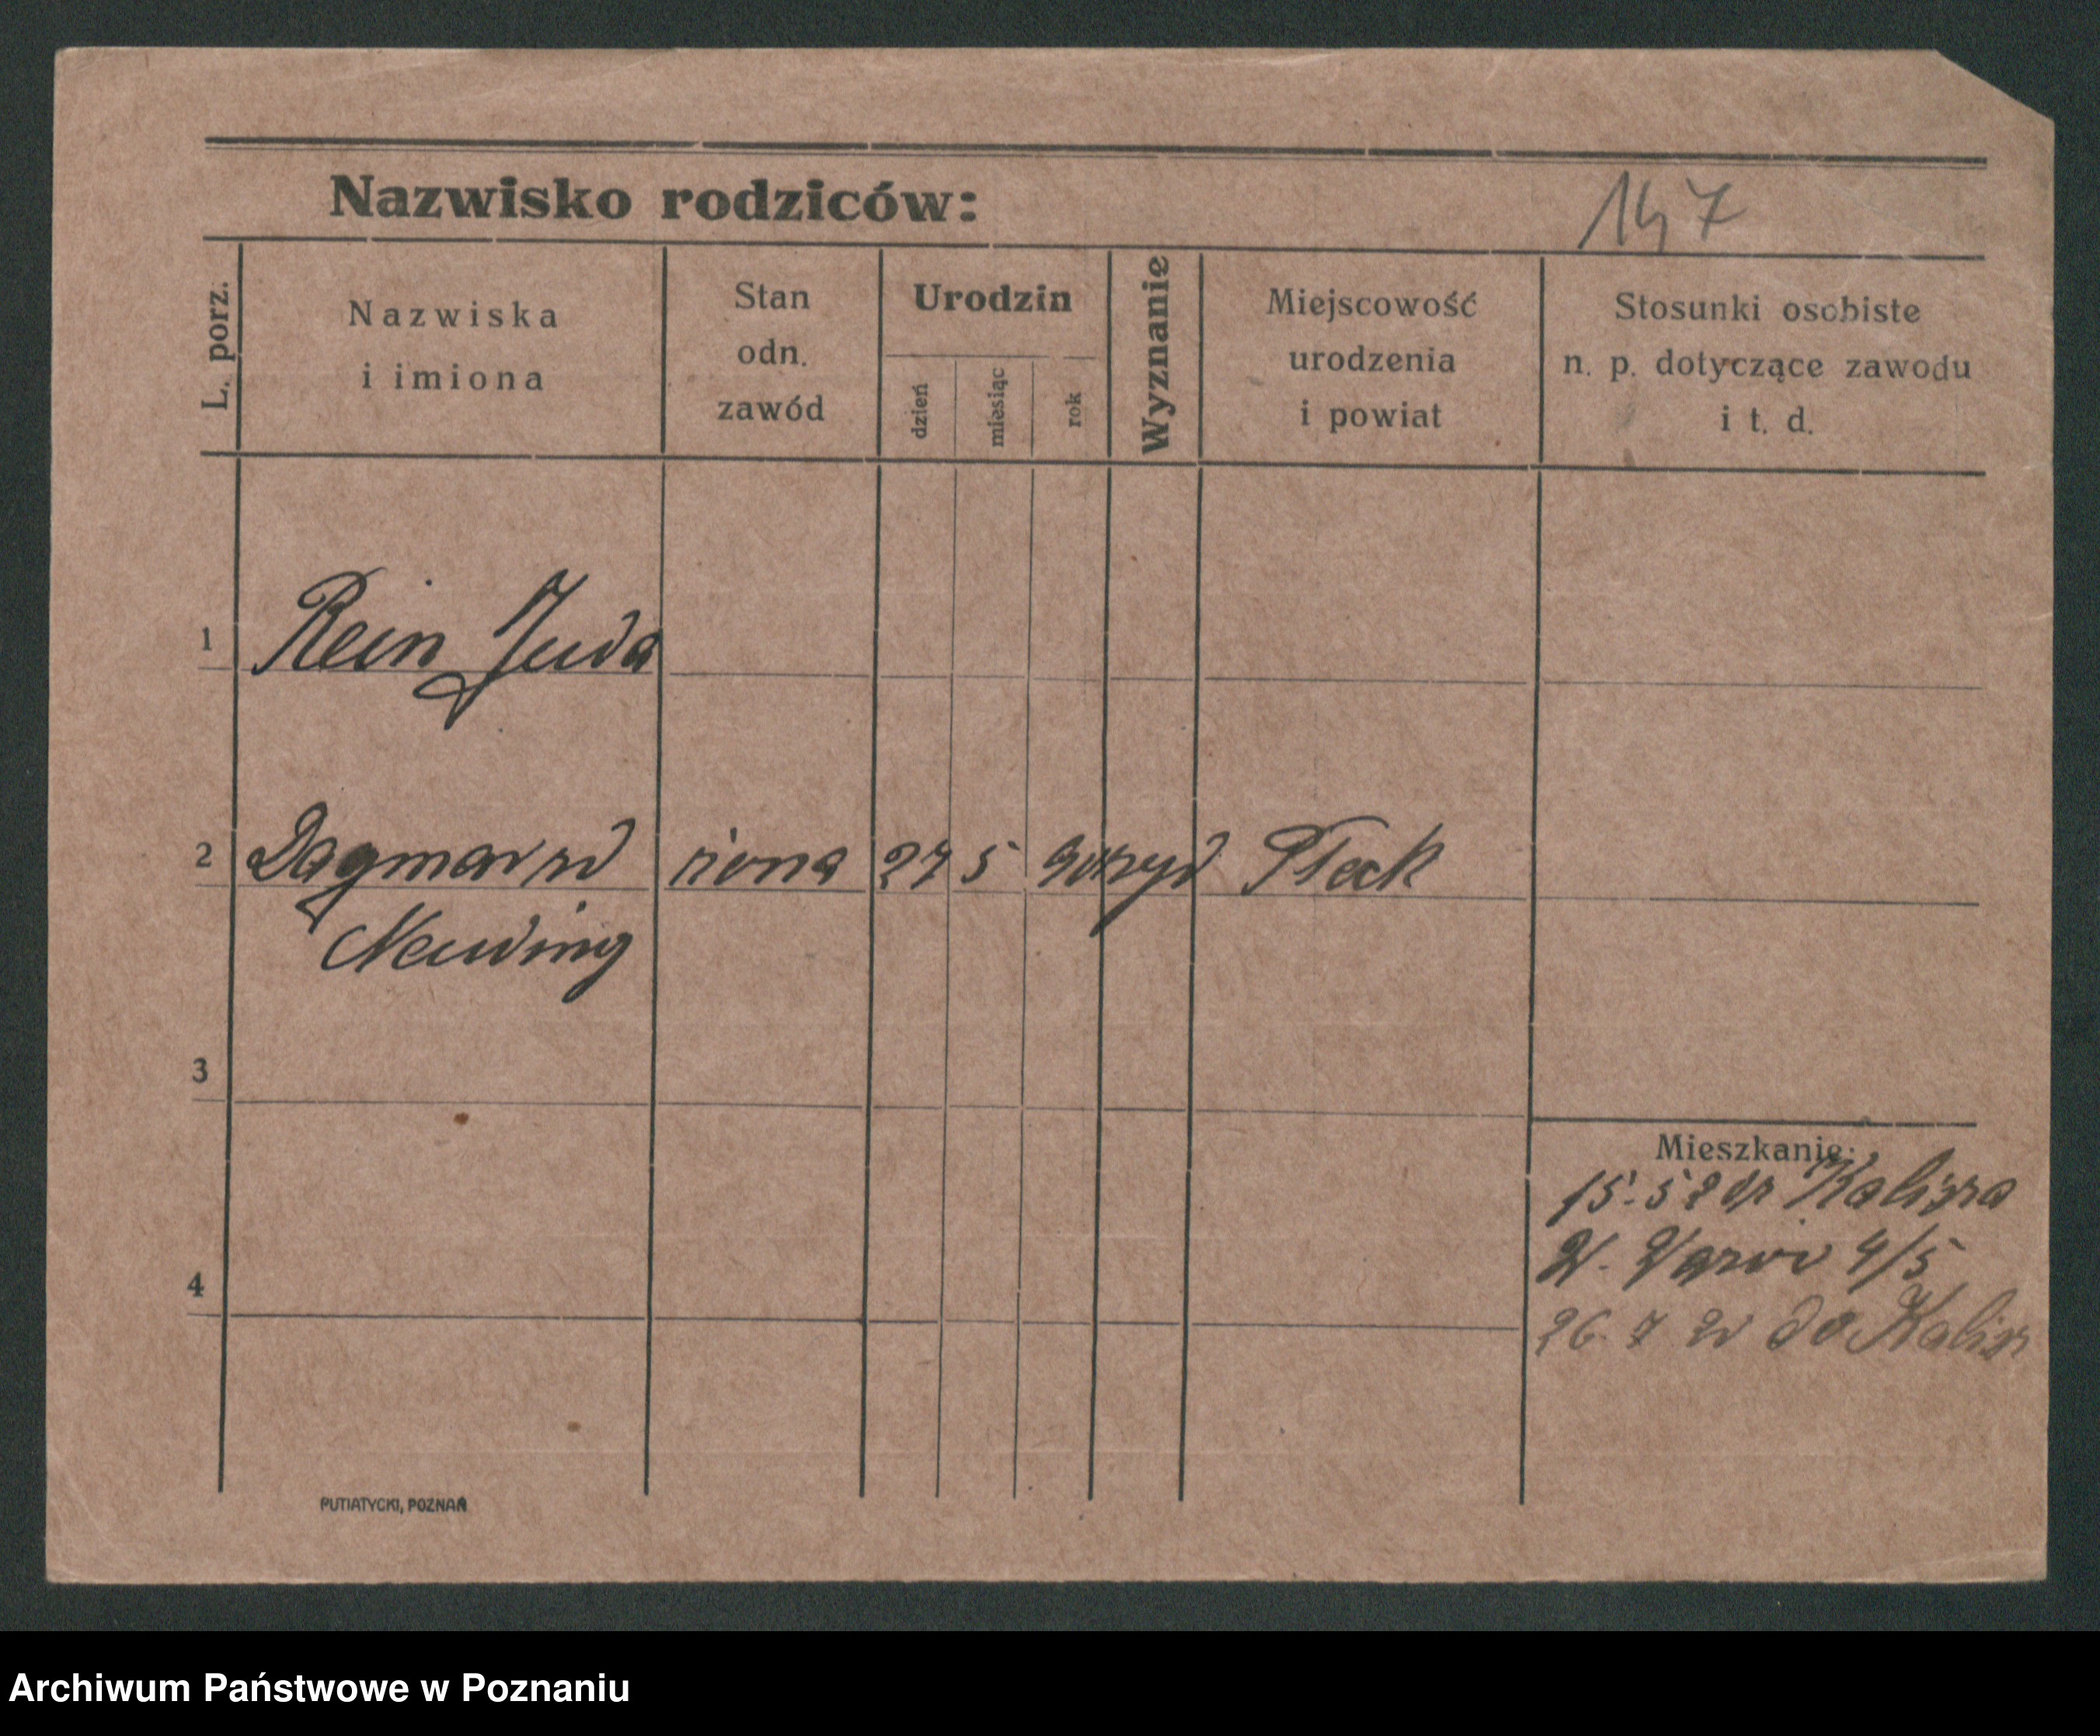 Nazwisko rodziców:
147
L. porz.
Nazwiska
i imiona
Stan
odn.
zawód
Urodzin
dzień
miesiąc
rok
Wyznanie
Miejscowość
urodzenia
i powiat
Stosunki osobiste
n. p. dotyczące zawodu
i t. d.
1 Rein Juda
2 Dagmara żona 27 5 żyd
3
Mieszkanie:
15. 5 Kalisza
4/5
4
26. 7 do Kalisz
PUTIATYCKI, POZNAŃ
Archiwum Państwowe w Poznaniu